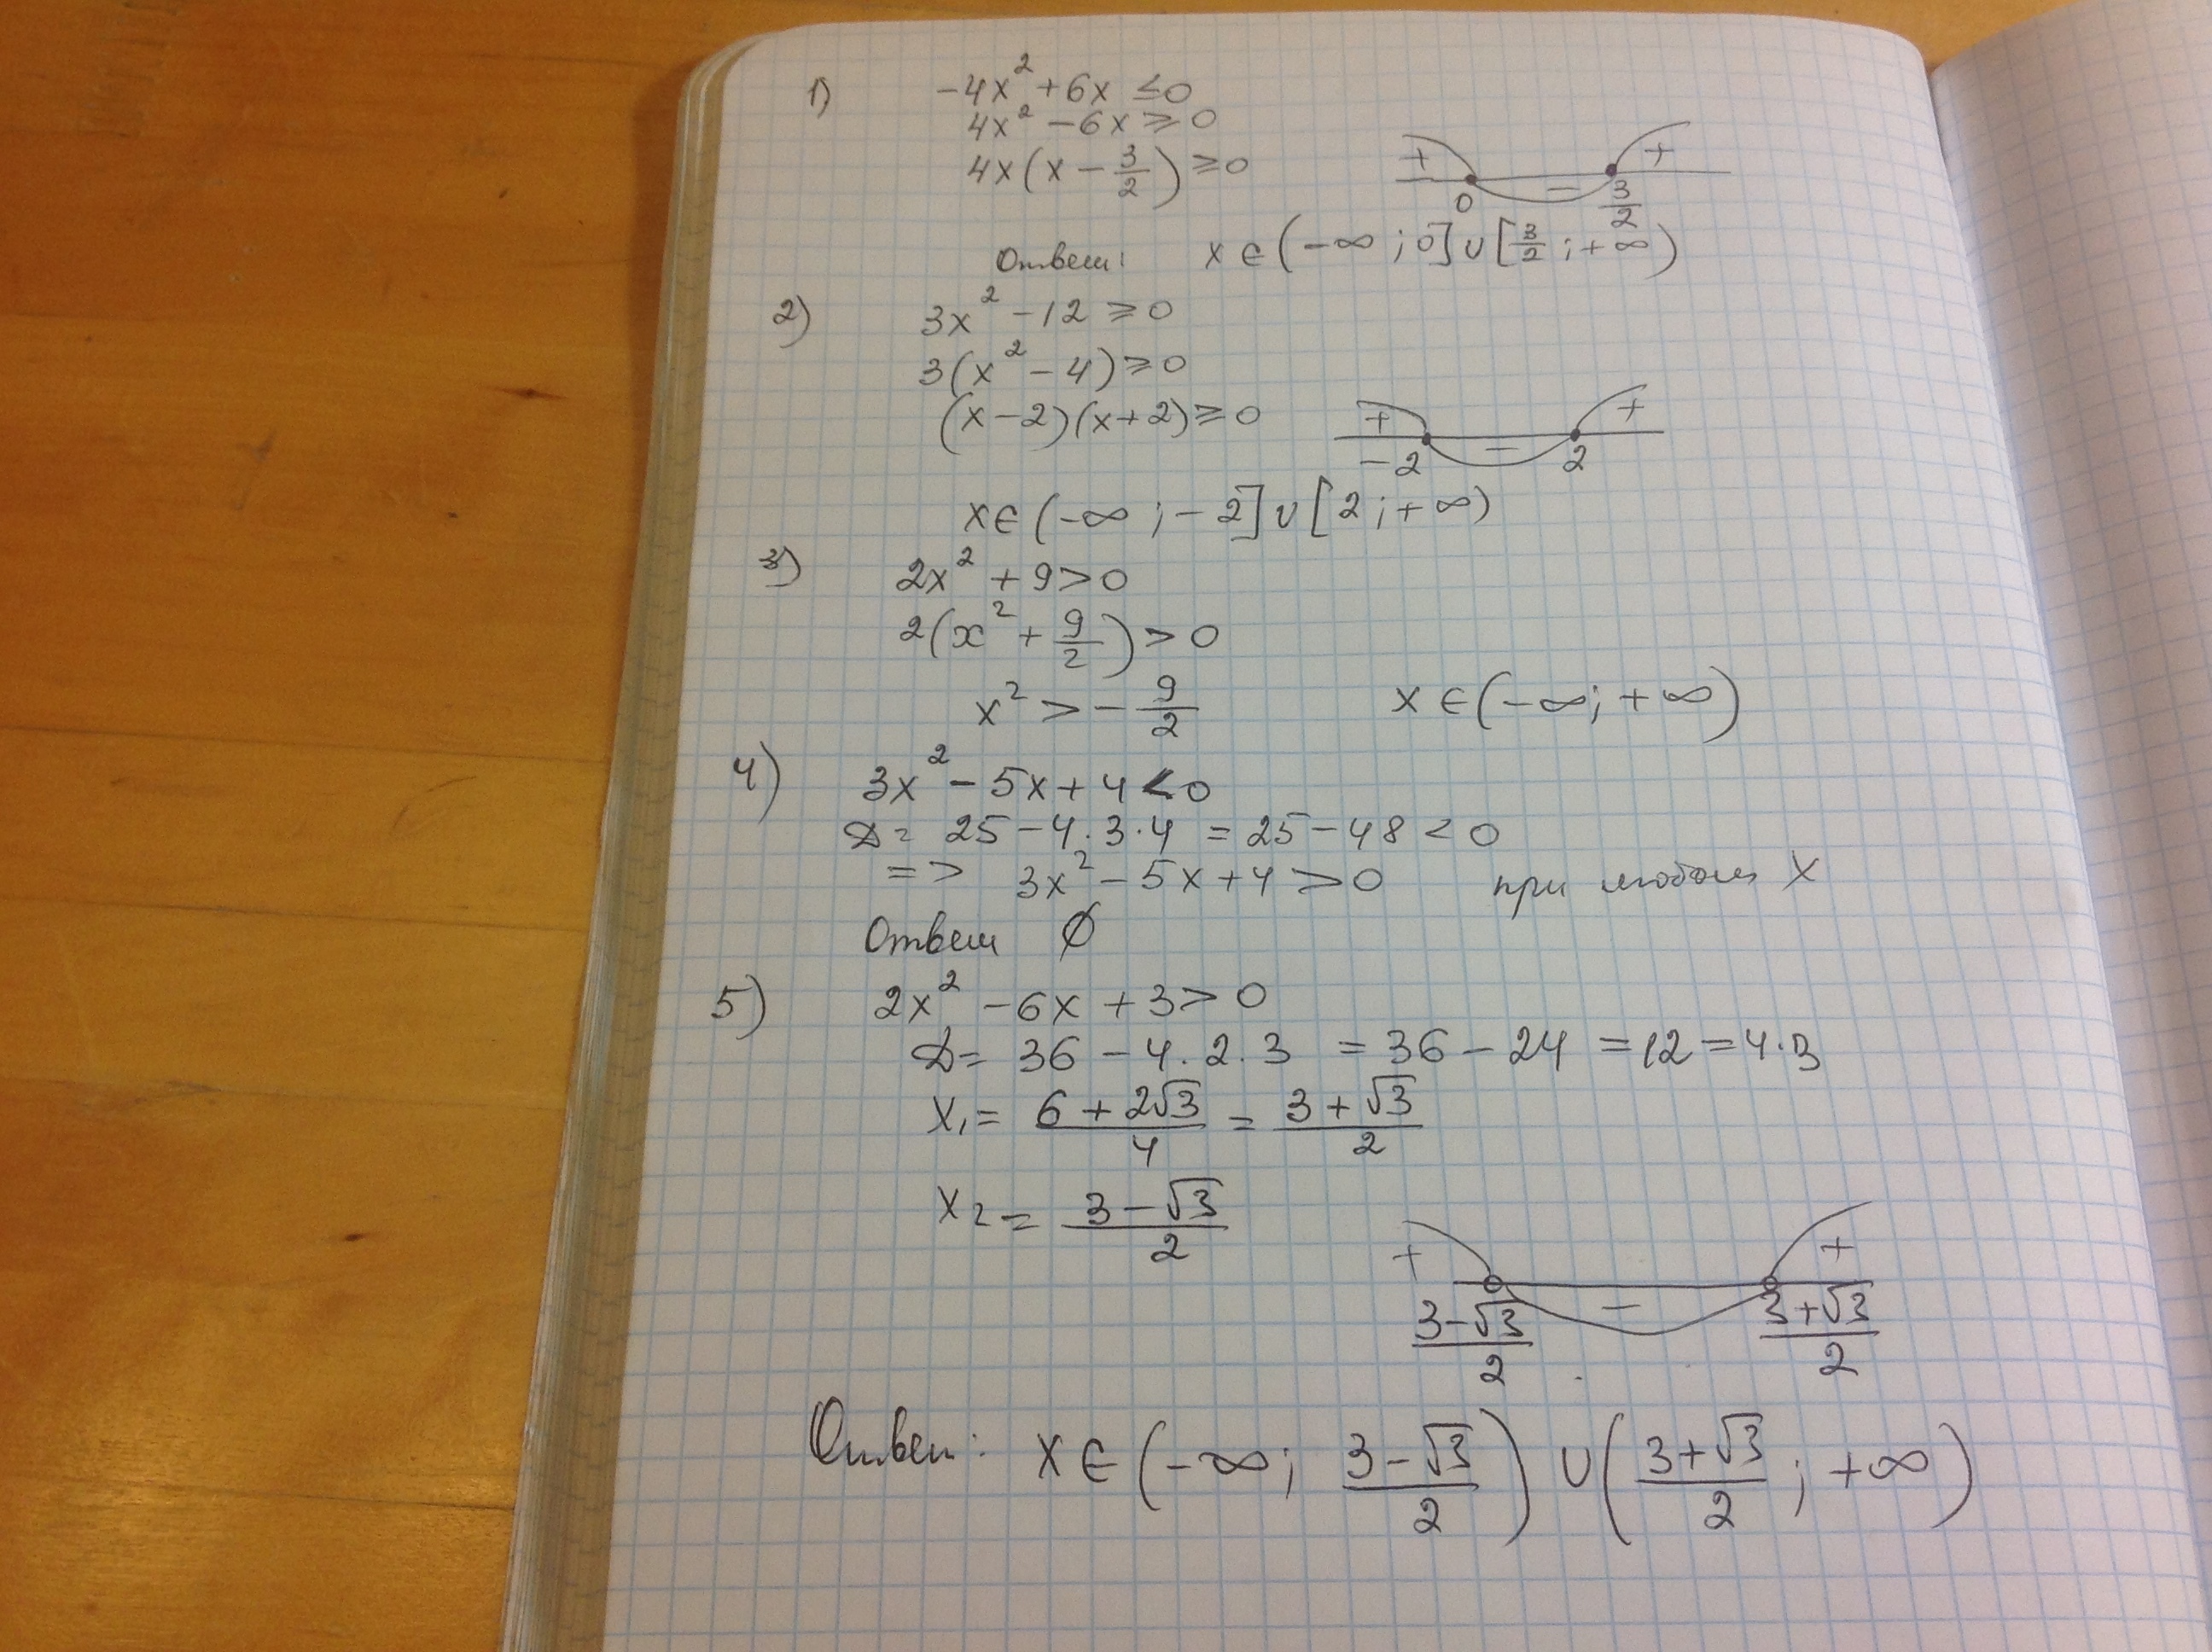 1) -4x² + 6x ≤ 0
4x² - 6x ≥ 0
4x(x - 3/2) ≥ 0
+ - +
0 3/2
Ответ: x ∈ (-∞ ; 0] ∪ [3/2 ; +∞)
2) 3x² - 12 ≥ 0
3(x² - 4) ≥ 0
(x - 2)(x + 2) ≥ 0
+ - +
-2 2
x ∈ (-∞ ; -2] ∪ [2 ; +∞)
3) 2x² + 9 > 0
2(x² + 9/2) > 0
x² > - 9/2 x ∈ (-∞; +∞)
4) 3x² - 5x + 4 < 0
D = 25 - 4·3·4 = 25 - 48 < 0
=> 3x² - 5x + 4 > 0 при любом x
Ответ ∅
5) 2x² - 6x + 3 > 0
D = 36 - 4·2·3 = 36 - 24 = 12 = 4·3
x₁ = (6 + 2√3)/4 = (3 + √3)/2
x₂ = (3 - √3)/2
+ - +
(3 - √3)/2 (3 + √3)/2
Ответ: x ∈ (-∞; (3 - √3)/2) ∪ ((3 + √3)/2 ; +∞)